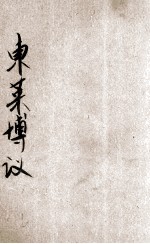 東莱博议